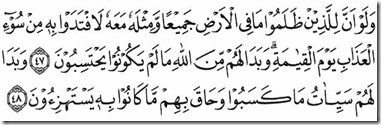 وَلَوْ اَنَّ لِلَّذِیْنَ ظَلَمُوْا مَا فِی الْاَرْضِ جَمِیْعًا وَّ مِثْلَهٗ مَعَهٗ لَافْتَدَوْا بِهٖ مِنْ سُوْٓءِ
الْعَذَابِ یَوْمَ الْقِیٰمَةِ ؕ وَ بَدَا لَهُمْ مِّنَ اللّٰهِ مَا لَمْ یَكُوْنُوْا یَحْتَسِبُوْنَ ﴿۴۷﴾ وَ بَدَا
لَهُمْ سَیِّاٰتُ مَا كَسَبُوْا وَ حَاقَ بِهِمْ مَّا كَانُوْا بِهٖ یَسْتَهْزِءُوْنَ ﴿۴۸﴾